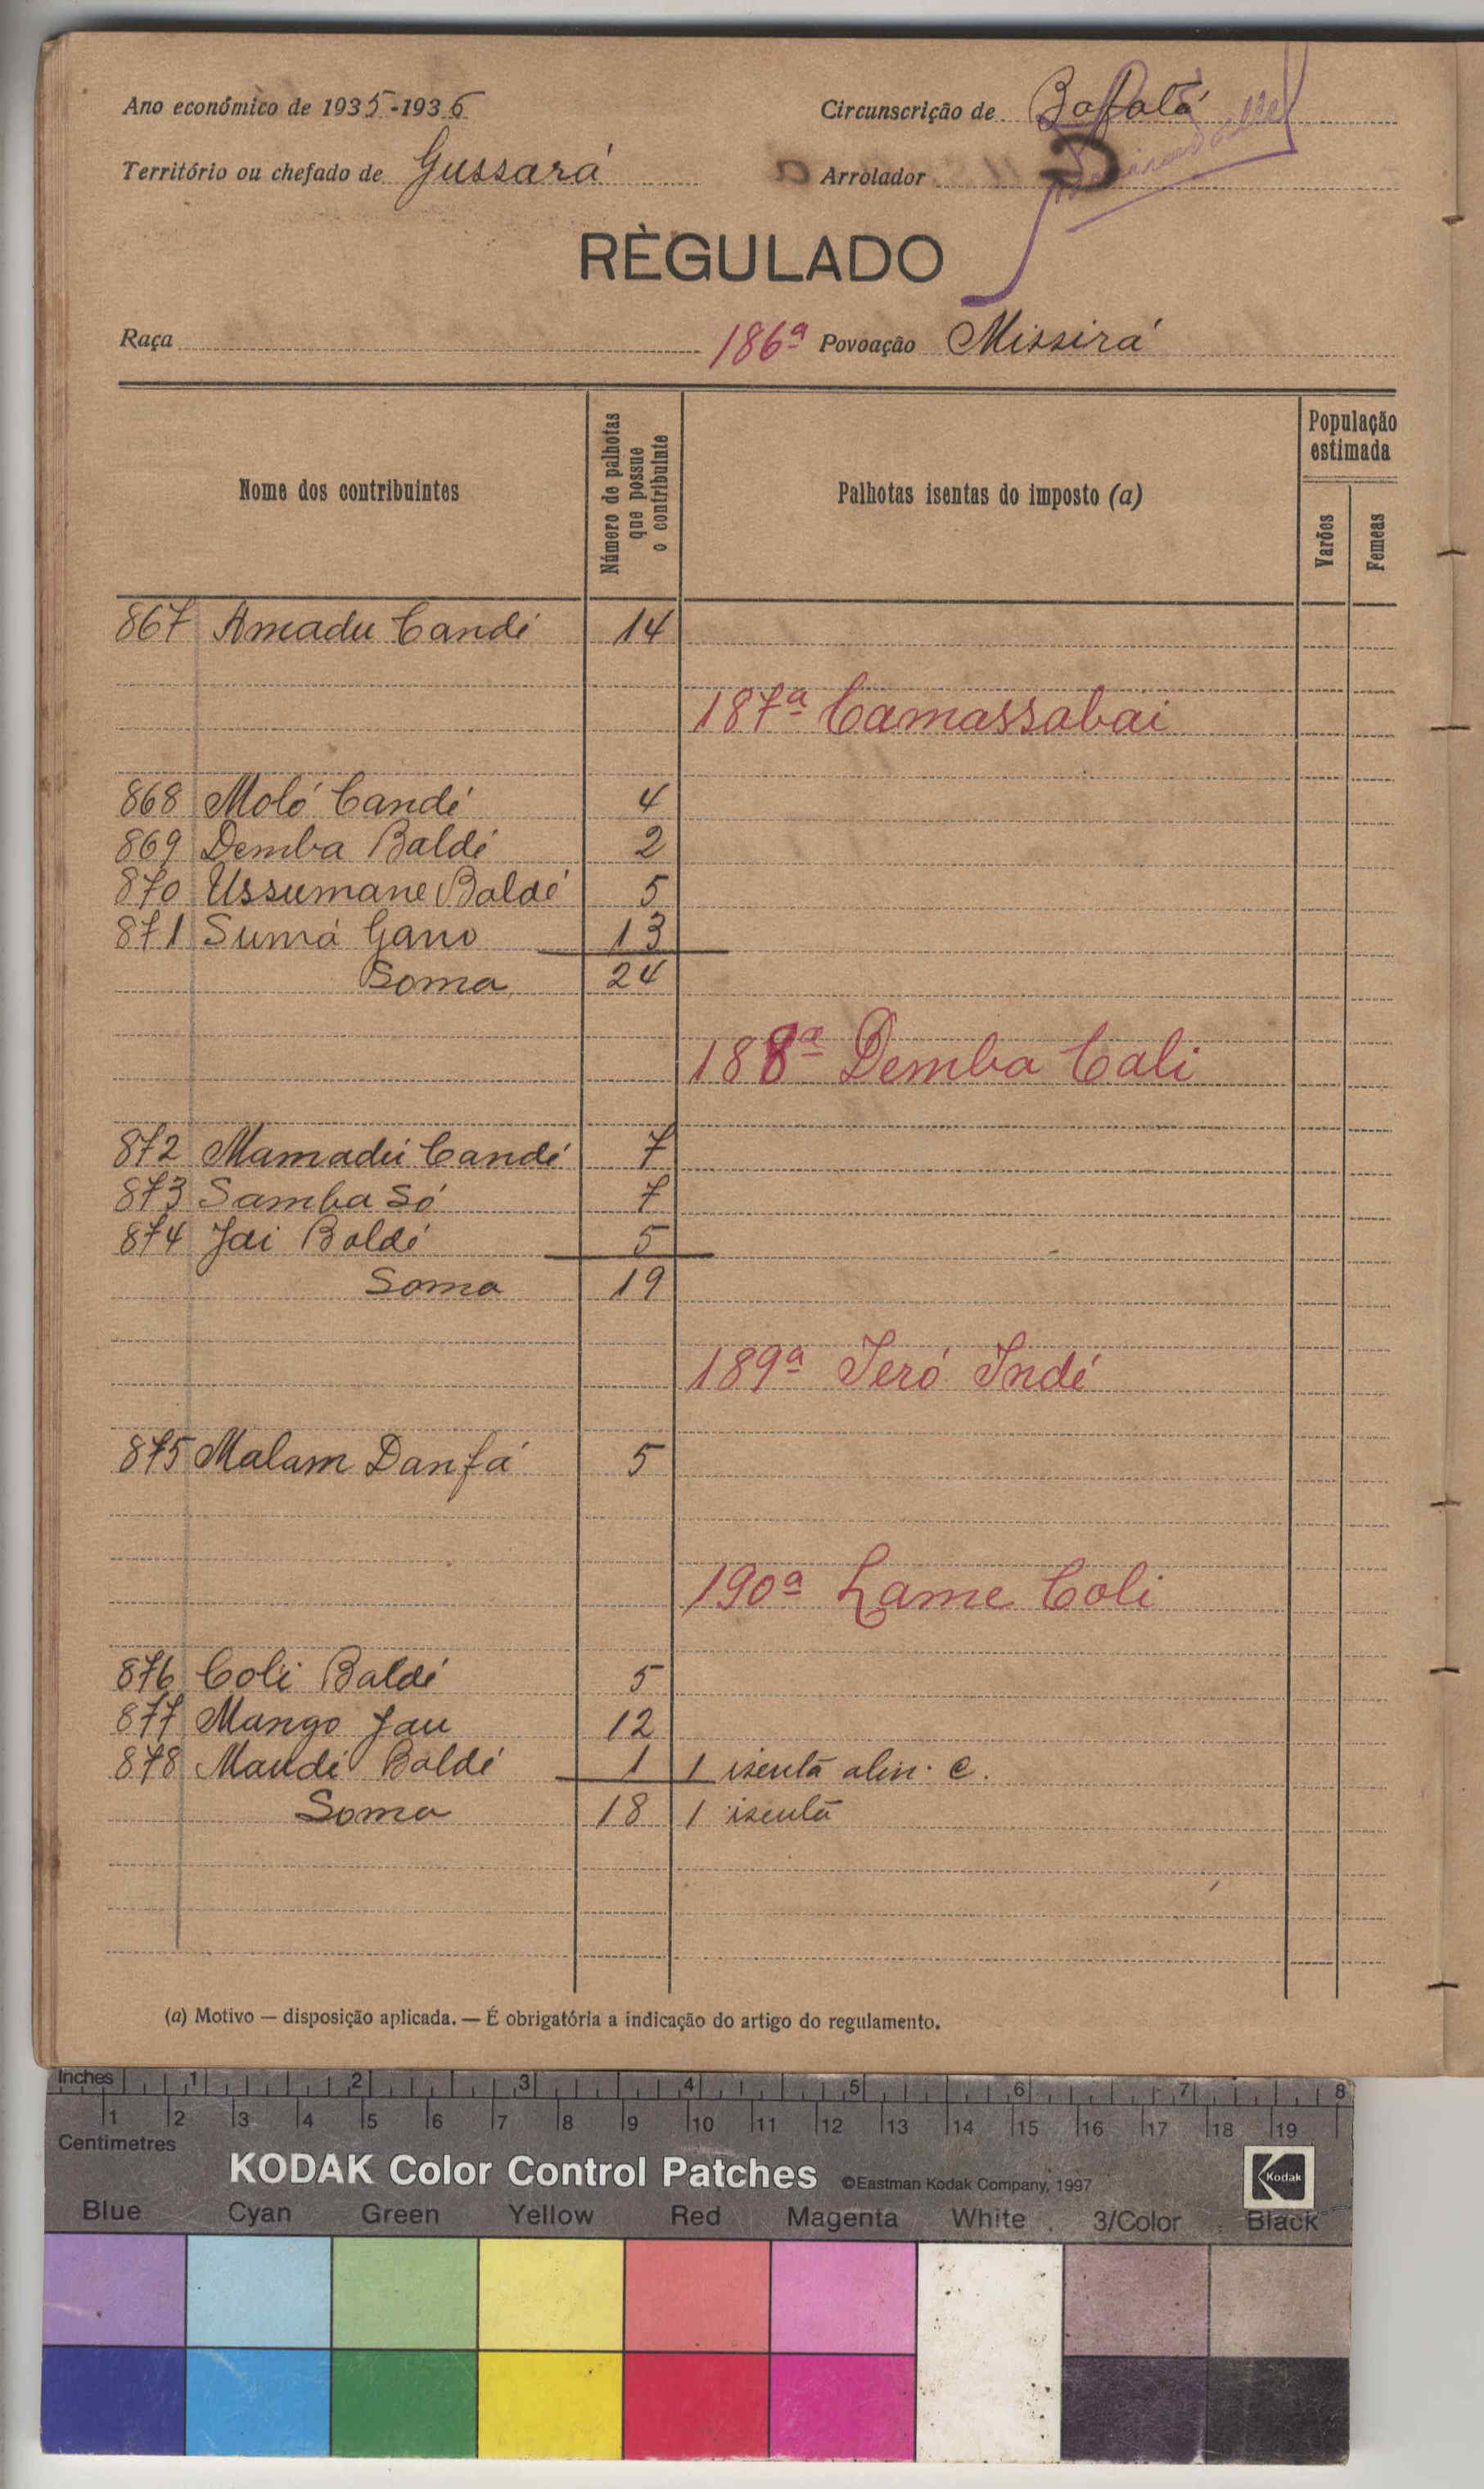 Ano económico de 1935-1936 Circunscrição de Bafatá
Território ou chefado de Gussará Arrolador
RÈGULADO
Raça 186ª Povoação Missirá
Nome dos contribuintes
Número de palhotas que possue o contribuinte
Palhotas isentas do imposto (a)
População estimada
Varões
Femeas
867 Amadu Candé 14
187ª Camassabai
868 Moló Candé 4
869 Demba Baldé 2
870 Ussumane Baldé 5
871 Sumá Gano 13
Soma 24
188ª Demba Cali
872 Mamadú Candé 7
873 Samba Só 7
874 Jai Baldé 5
Soma 19
189ª Jeró Indé
875 Malam Danfá 5
190ª Lame Coli
876 Coli Baldé 5
877 Mango Jau 12
878 Maudé Baldé 1 1 isentã alin. c.
Soma 18 1 isentã
(a) Motivo — disposição aplicada. — É obrigatória a indicação do artigo do regulamento.
Inches 1 2 3 4 5 6 7 8
1 2 3 4 5 6 7 8 9 10 11 12 13 14 15 16 17 18 19
Centimetres
KODAK Color Control Patches ©Eastman Kodak Company, 1997 Kodak
Blue Cyan Green Yellow Red Magenta White 3/Color Black